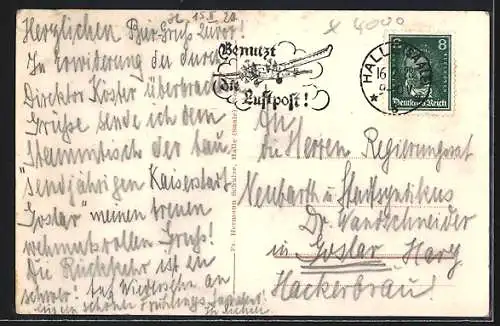 Herzlichen Bier-Gruß zuvor!
In Erwiderung der durch
Direktor Köster überbrach.
Grüße sende ich dem
Stammtisch der tau
"sendjährigen Kaiserstadt
Goslar" meinen treuen
wehmutsvollen Gruß!
Die Rückkehr ist ein
schwer! Auf Wiedersehn an
einem schönen Frühlings
Benutzt
die
Luftpost!
HALLE (SAALE)
16
8 8
Deutsches Reich
x 4000
An
die Herren Regierungsrat
Neubarth u. Stadtsyndikus
Dr. Wandschneider
in Goslar Harz
Hackerbräu!
Fr. Hermann Schulze, Halle (Saale)